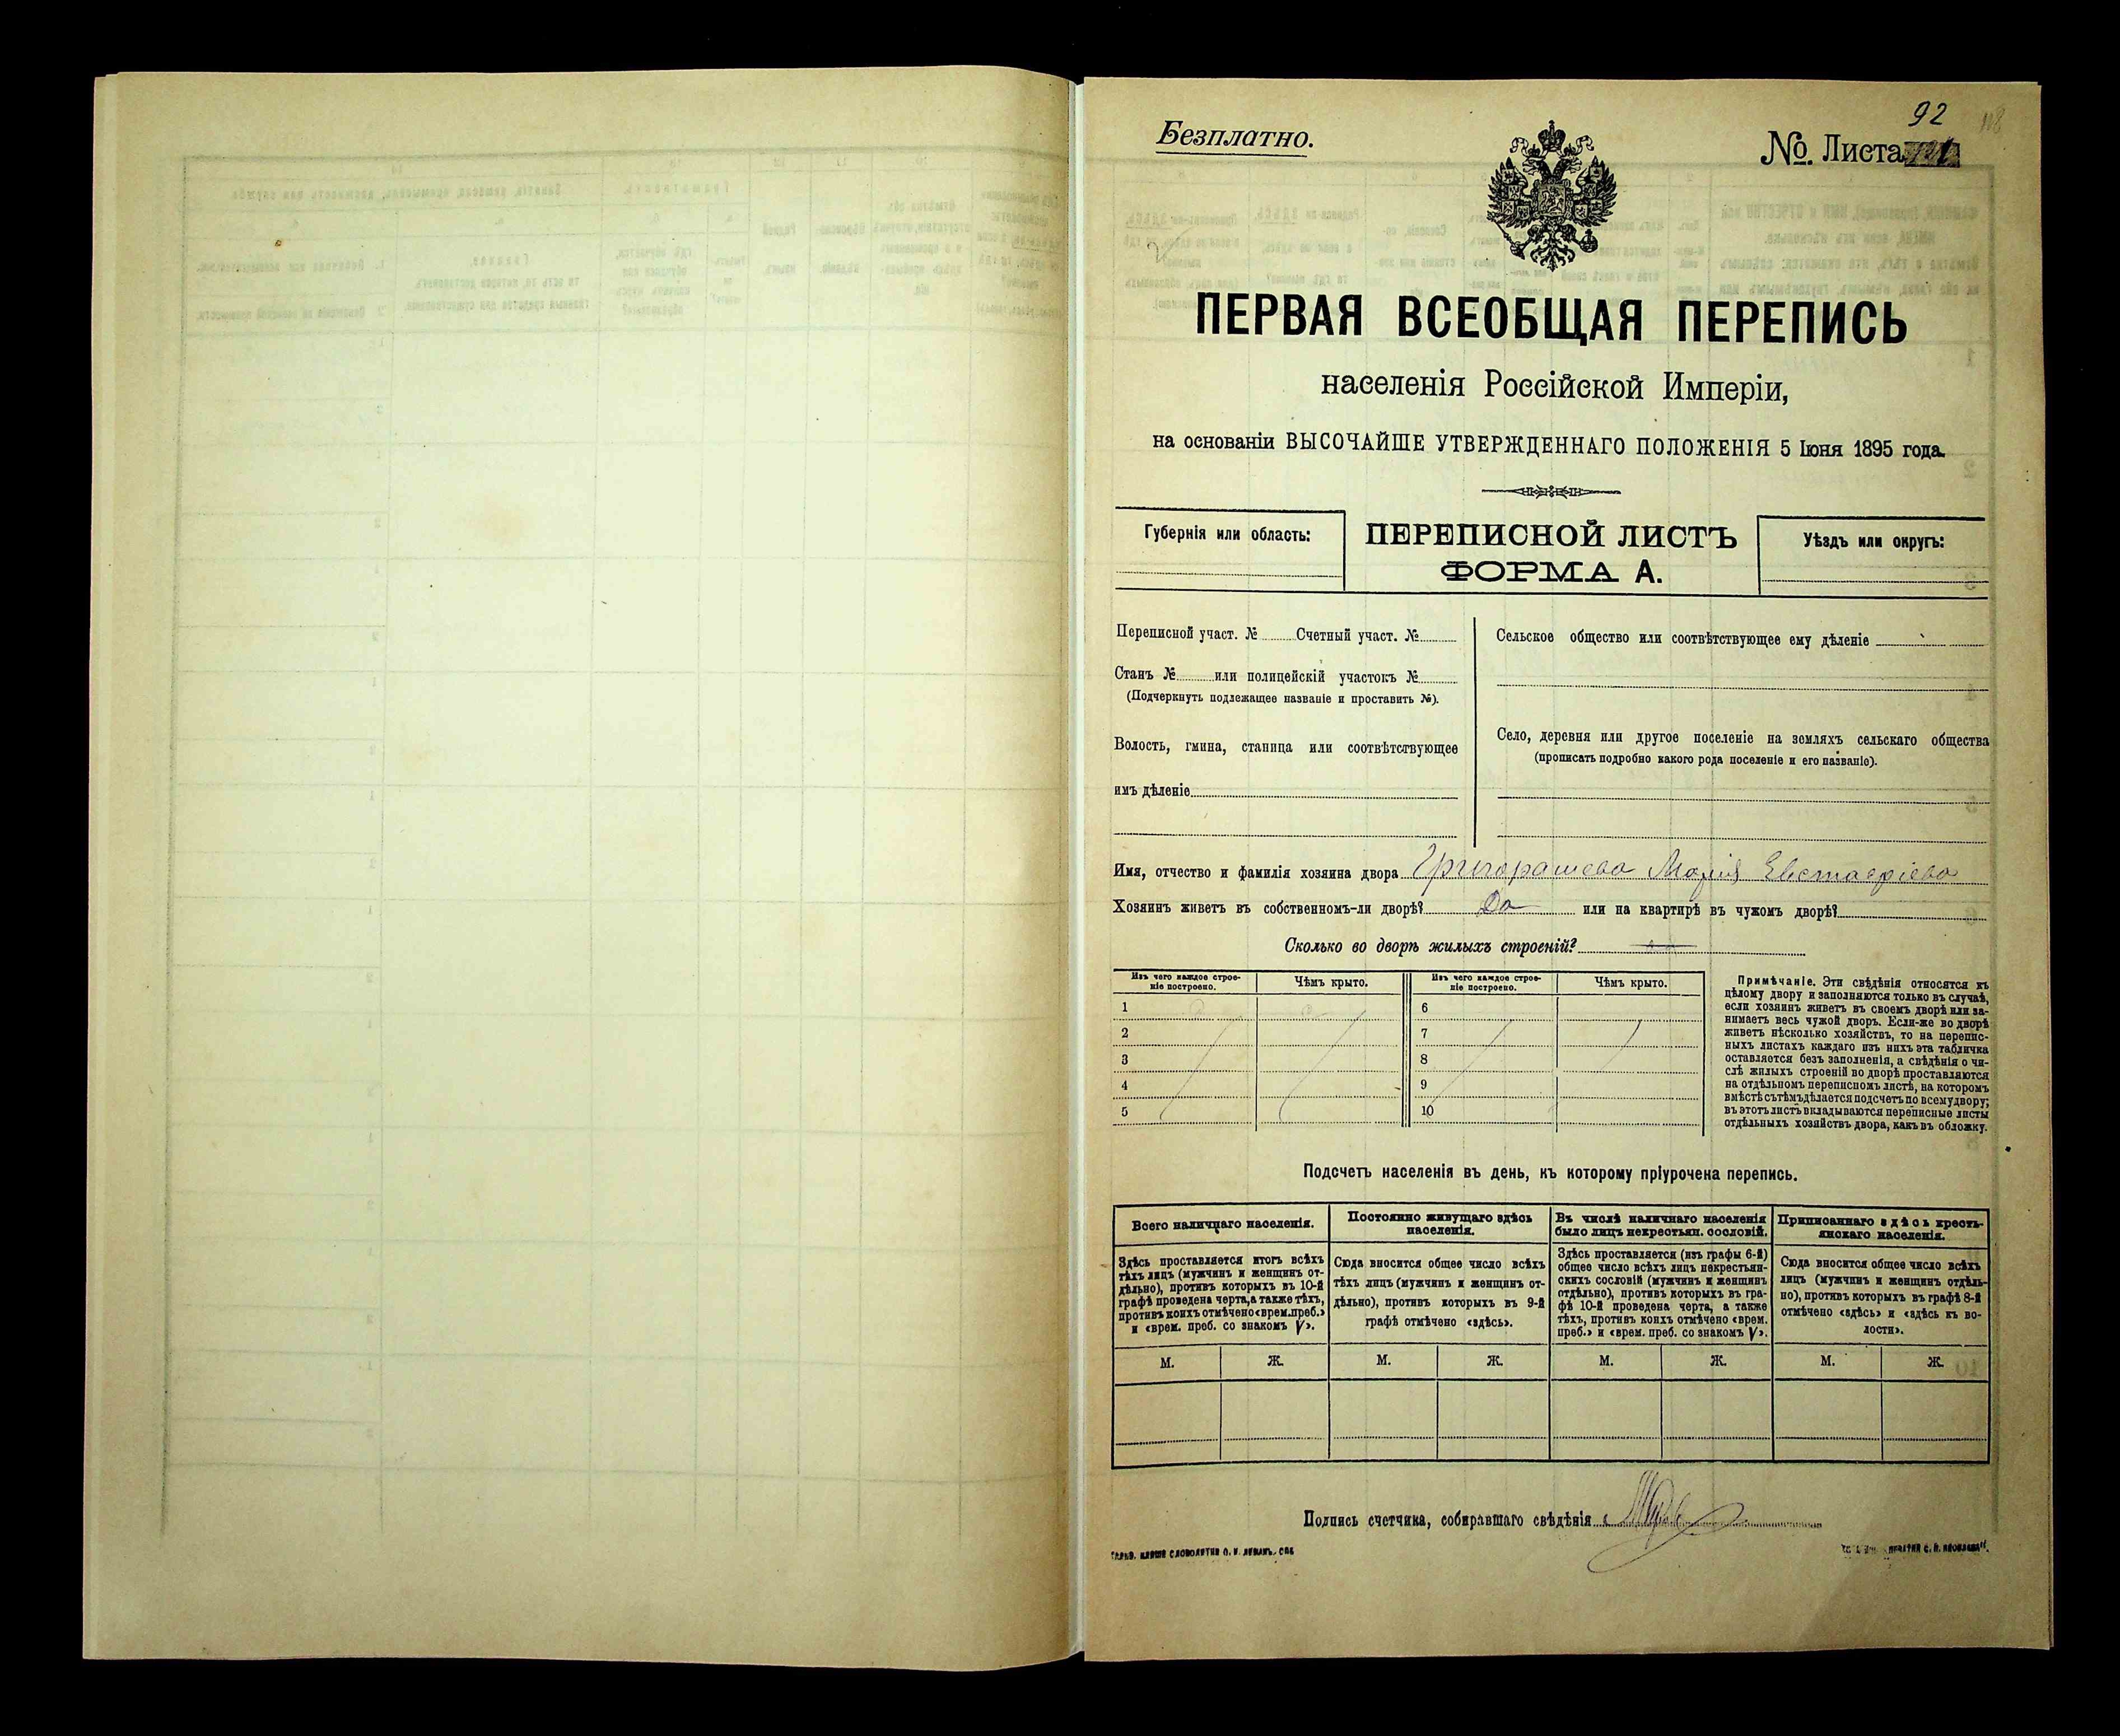 92 118
Безплатно.
№ Листа
ПЕРВАЯ ВСЕОБЩАЯ ПЕРЕПИСЬ
населенія Россійской Имперіи,
на основаніи ВЫСОЧАЙШЕ УТВЕРЖДЕННАГО ПОЛОЖЕНІЯ 5 Іюня 1895 года.
Губернія или область:
ПЕРЕПИСНОЙ ЛИСТЪ
ФОРМА А.
Уѣздъ или округъ:
Переписной участ. № Счетный участ. №
Станъ № или полицейскій участокъ №
(Подчеркнуть подлежащее названіе и проставить №).
Волость, гмина, станица или соотвѣтствующее
имъ дѣленіе
Сельское общество или соотвѣтствующее ему дѣленіе
Село, деревня или другое поселеніе на земляхъ сельскаго общества
(прописать подробно какого рода поселеніе и его названіе).
Имя, отчество и фамилія хозяина двора Григорашева Марія Евстафіева
Хозяинъ живетъ въ собственномъ-ли дворѣ? Да или на квартирѣ въ чужомъ дворѣ?
Сколько во дворѣ жилыхъ строеній?
Изъ чего каждое строе-
ніе построено.
Чѣмъ крыто.
Изъ чего каждое строе-
ніе построено.
Чѣмъ крыто.
1 6
2 7
3 8
4 9
5 10
Примѣчаніе. Эти свѣдѣнія относятся къ
цѣлому двору и заполняются только въ случаѣ,
если хозяинъ живетъ въ своемъ дворѣ или за-
нимаетъ весь чужой дворъ. Если-же во дворѣ
живетъ нѣсколько хозяйствъ, то на перепис-
ныхъ листахъ каждаго изъ нихъ эта табличка
оставляется безъ заполненія, а свѣдѣнія о чи-
слѣ жилыхъ строеній во дворѣ проставляются
на отдѣльномъ переписномъ листѣ, на которомъ
вмѣстѣ съ тѣмъ дѣлается подсчетъ по всему двору;
въ этотъ листъ вкладываются переписные листы
отдѣльныхъ хозяйствъ двора, какъ въ обложку.
Подсчетъ населенія въ день, къ которому пріурочена перепись.
Всего наличнаго населенія.
Здѣсь проставляется итогъ всѣхъ
тѣхъ лицъ (мужчинъ и женщинъ от-
дѣльно), противъ которыхъ въ 10-й
графѣ проведена черта, а также тѣхъ,
противъ коихъ отмѣчено «врем. преб.»
и «врем. преб. со знакомъ V».
Постоянно живущаго здѣсь
населенія.
Сюда вносится общее число всѣхъ
тѣхъ лицъ (мужчинъ и женщинъ от-
дѣльно), противъ которыхъ въ 9-й
графѣ отмѣчено «здѣсь».
Въ числѣ наличнаго населенія
было лицъ некрестьян. сословій.
Здѣсь проставляется (изъ графы 6-й)
общее число всѣхъ лицъ некрестьян-
скихъ сословій (мужчинъ и женщинъ
отдѣльно), противъ которыхъ въ гра-
фѣ 10-й проведена черта, а также
тѣхъ, противъ коихъ отмѣчено «врем.
преб.» и «врем. преб. со знакомъ V».
Приписаннаго здѣсь кресть-
янскаго населенія.
Сюда вносится общее число всѣхъ
лицъ (мужчинъ и женщинъ отдѣль-
но), противъ которыхъ въ графѣ 8-й
отмѣчено «здѣсь» и «здѣсь къ во-
лости».
М. Ж. М. Ж. М. Ж. М. Ж.
Подпись счетчика, собиравшаго свѣдѣнія
СЛОВОЛИТНИ О. И. ЛЕМАНЪ. СПБ